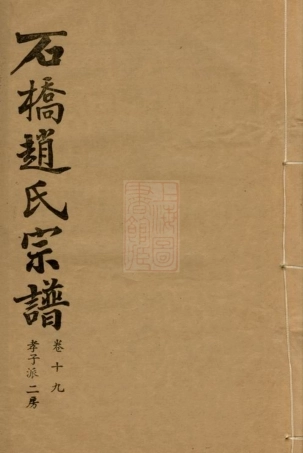 石橋趙氏宗譜
卷十九
孝子派二房
上海圖
書館藏